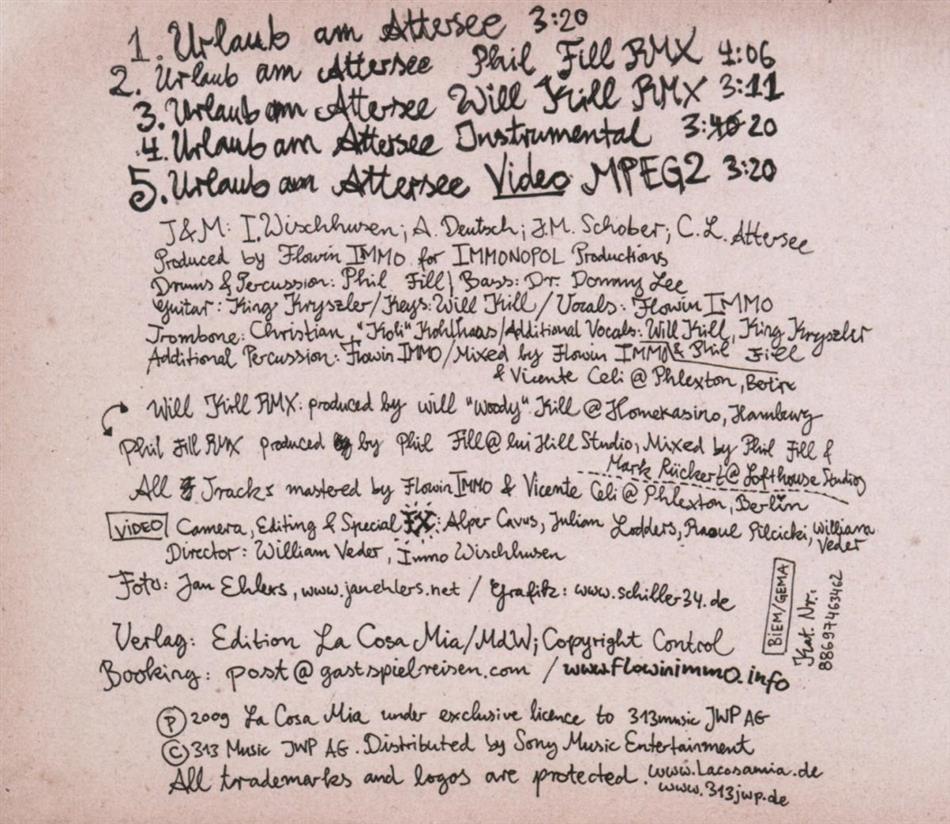 1. Urlaub am Attersee 3:20
2. Urlaub am Attersee Phil Fill RMX 4:06
3. Urlaub am Attersee Will Kill RMX 3:11
4. Urlaub am Attersee Instrumental 3:40 20
5. Urlaub am Attersee Video MPEG2 3:20
T&M: I. Wischhusen; A. Deutsch; J.M. Schober; C.L. Attersee
Produced by Flowin IMMO for IMMONOPOL Productions
Drums & Percussion: Phil Fill / Bass: Dr. Dommy Lee
Guitar: King Kryszler / Keys: Will Kill / Vocals: Flowin IMMO
Trombone: Christian "Koli" Kohlhaas / Additional Vocals: Will Kill, King Kryszler
Additional Percussion: Flowin IMMO / Mixed by Flowin IMMO & Phil Fill
& Vicente Celi @ Phlexton, Berlin
Will Kill RMX: produced by Will "Woody" Kill @ Homekasino, Hamburg
Phil Fill RMX produced by by Phil Fill @ Hill Studio, Mixed by Phil Fill &
Mark Rückert @ Lofthouse Studios
All Tracks mastered by Flowin IMMO & Vicente Celi @ Phlexton, Berlin
VIDEO Camera, Editing & Special FX: Alper Cavus, Julian Lodders, Raoul Pilcicki, William Veder
Director: William Veder, Immo Wischhusen
Foto: Jan Ehlers, www.janehlers.net / Grafik: www.schiller34.de
Verlag: Edition La Cosa Mia/MdW; Copyright Control
Booking: post@gastspielreisen.com / www.flowinimmo.info
BIEM/GEMA
Kat. Nr.:
88697463462
Ⓟ 2009 La Cosa Mia under exclusive licence to 313music JWP AG
© 313 Music JWP AG. Distributed by Sony Music Entertainment
All trademarks and logos are protected. www.lacosamia.de
www.313jwp.de